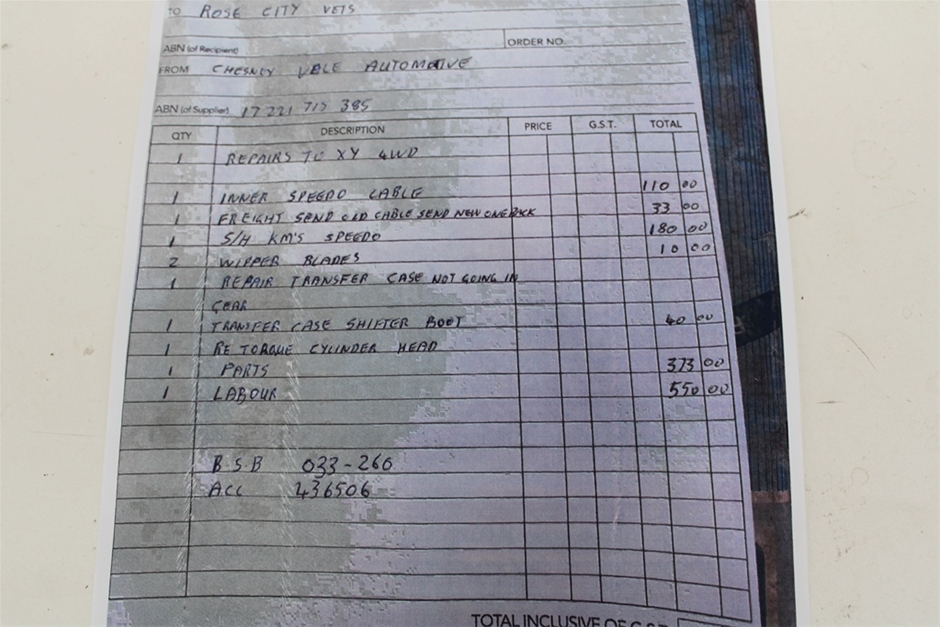 TO ROSE CITY VETS
ABN (of Recipient) ORDER NO.
FROM CHESNEY VALE AUTOMOTIVE
ABN (of Supplier) 17 221 715 385
QTY DESCRIPTION PRICE G.S.T. TOTAL
1 REPAIRS TO XY 4WD
1 INNER SPEEDO CABLE 110 00
1 FREIGHT SEND OLD CABLE SEND NEW ONE BACK 33 00
1 S/H KM'S SPEEDO 180 00
2 WIPPER BLADES 10 00
1 REPAIR TRANSFER CASE NOT GOING IN
GEAR
1 TRANSFER CASE SHIFTER BOOT 40 00
1 RE TORQUE CYLINDER HEAD
1 PARTS 373 00
1 LABOUR 550 00
B.S.B 033-266
ACC 436506
TOTAL INCLUSIVE OF G.S.T.